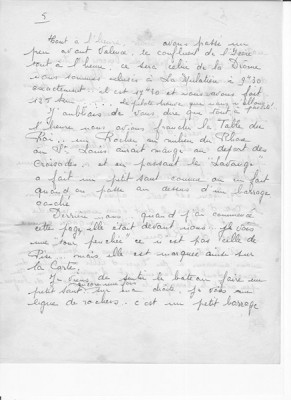 5
tout à l'heure avons passé un
peu avant Valence, le confluent de l'Isère
tout à l'heure ce sera celui de la Drôme
nous sommes à La Mulatière à 9h30
exactement il est 17h30 et nous avons fait
125 km
J'oubliais de vous dire que tout à
l'heure nous avions franchi la Table du
Roi, un Rocher au milieu du Rhône
ou St Louis aurait mangé au départ des
Croisades, et en passant le
a fait un petit saut comme on en fait
quand on passe au dessus d'un barrage
caché
Derrière nous, quand j'ai commencé
cette page, elle était devant nous, je vois
une tour penchée ce n'est pas celle de
Pise, mais elle est marquée ainsi sur
la Carte,
Je viens de sentir le bateau faire un
petit saut sur sa droite, je vois une
ligne de rochers, c'est un petit barrage